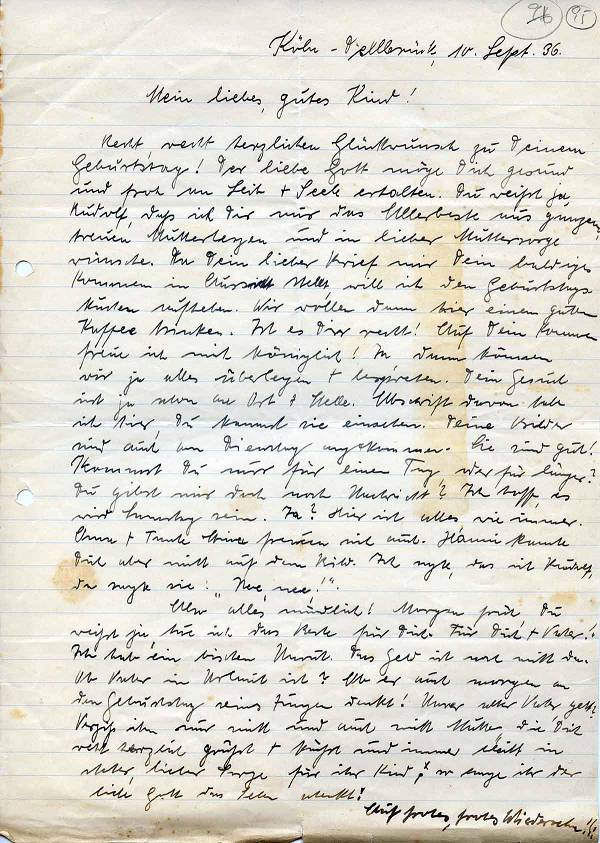 96 95
Köln-Dellbrück, 10. Sept. 36.
Mein liebes, gutes Kind!
Recht, recht herzlichen Glückwunsch zu Deinem
Geburtstag! Der liebe Gott möge Dich gesund
und froh an Leib + Seele erhalten. Du weißt ja,
Rudolf, daß ich Dir nur das Allerbeste aus ganzem,
treuen Mutterherzen und in lieber Muttersorge
wünsche. Da Dein lieber Brief mir Dein baldiges
Kommen in Aussicht stellt, will ich den Geburtstags
kuchen aufheben. Wir wollen dann hier einen guten
Kaffee trinken. Ist es Dir recht! Auf Dein Kommen
freue ich mich königlich! Ja dann können
wir ja alles überlegen + besprechen. Dein Gesuch
ist ja schon an Ort + Stelle. Abschrift davon hab
ich hier, Du kannst sie einsehen. Deine Bilder
sind auch am Dienstag angekommen. Sie sind gut!
Kommst Du nur für einen Tag oder für länger?
Du gibst mir doch noch Nachricht? Ich hoff, es
wird Samstag sein. Ja? Hier ist alles wie immer.
+ Tante freuen sich auch. kannte
Dich aber nicht auf dem Bild. Ich sagte, das ist Rudolf,
da sagte sie: „Nee, nee!".
Also alles mündlich! Morgen früh, Du
weißt ja, tue ich das Beste für Dich. Für Dich + Vater!
Ich hab ein bischen Unruh. Das Geld ist noch nicht da.
Ob Vater in Urlaub ist? Ob er auch morgen an
den Geburtstag seines Jungen denkt! Unser alter Vater
Vergiß ihn nur nicht und auch nicht Mutter, die Dich
recht herzlich grüßt + küßt und immer bleibt in
steter, lieber Sorge für ihr Kind, so lange ihr der
liebe Gott das Leben schenkt!
Auf frohes, frohes Wiedersehen!!!